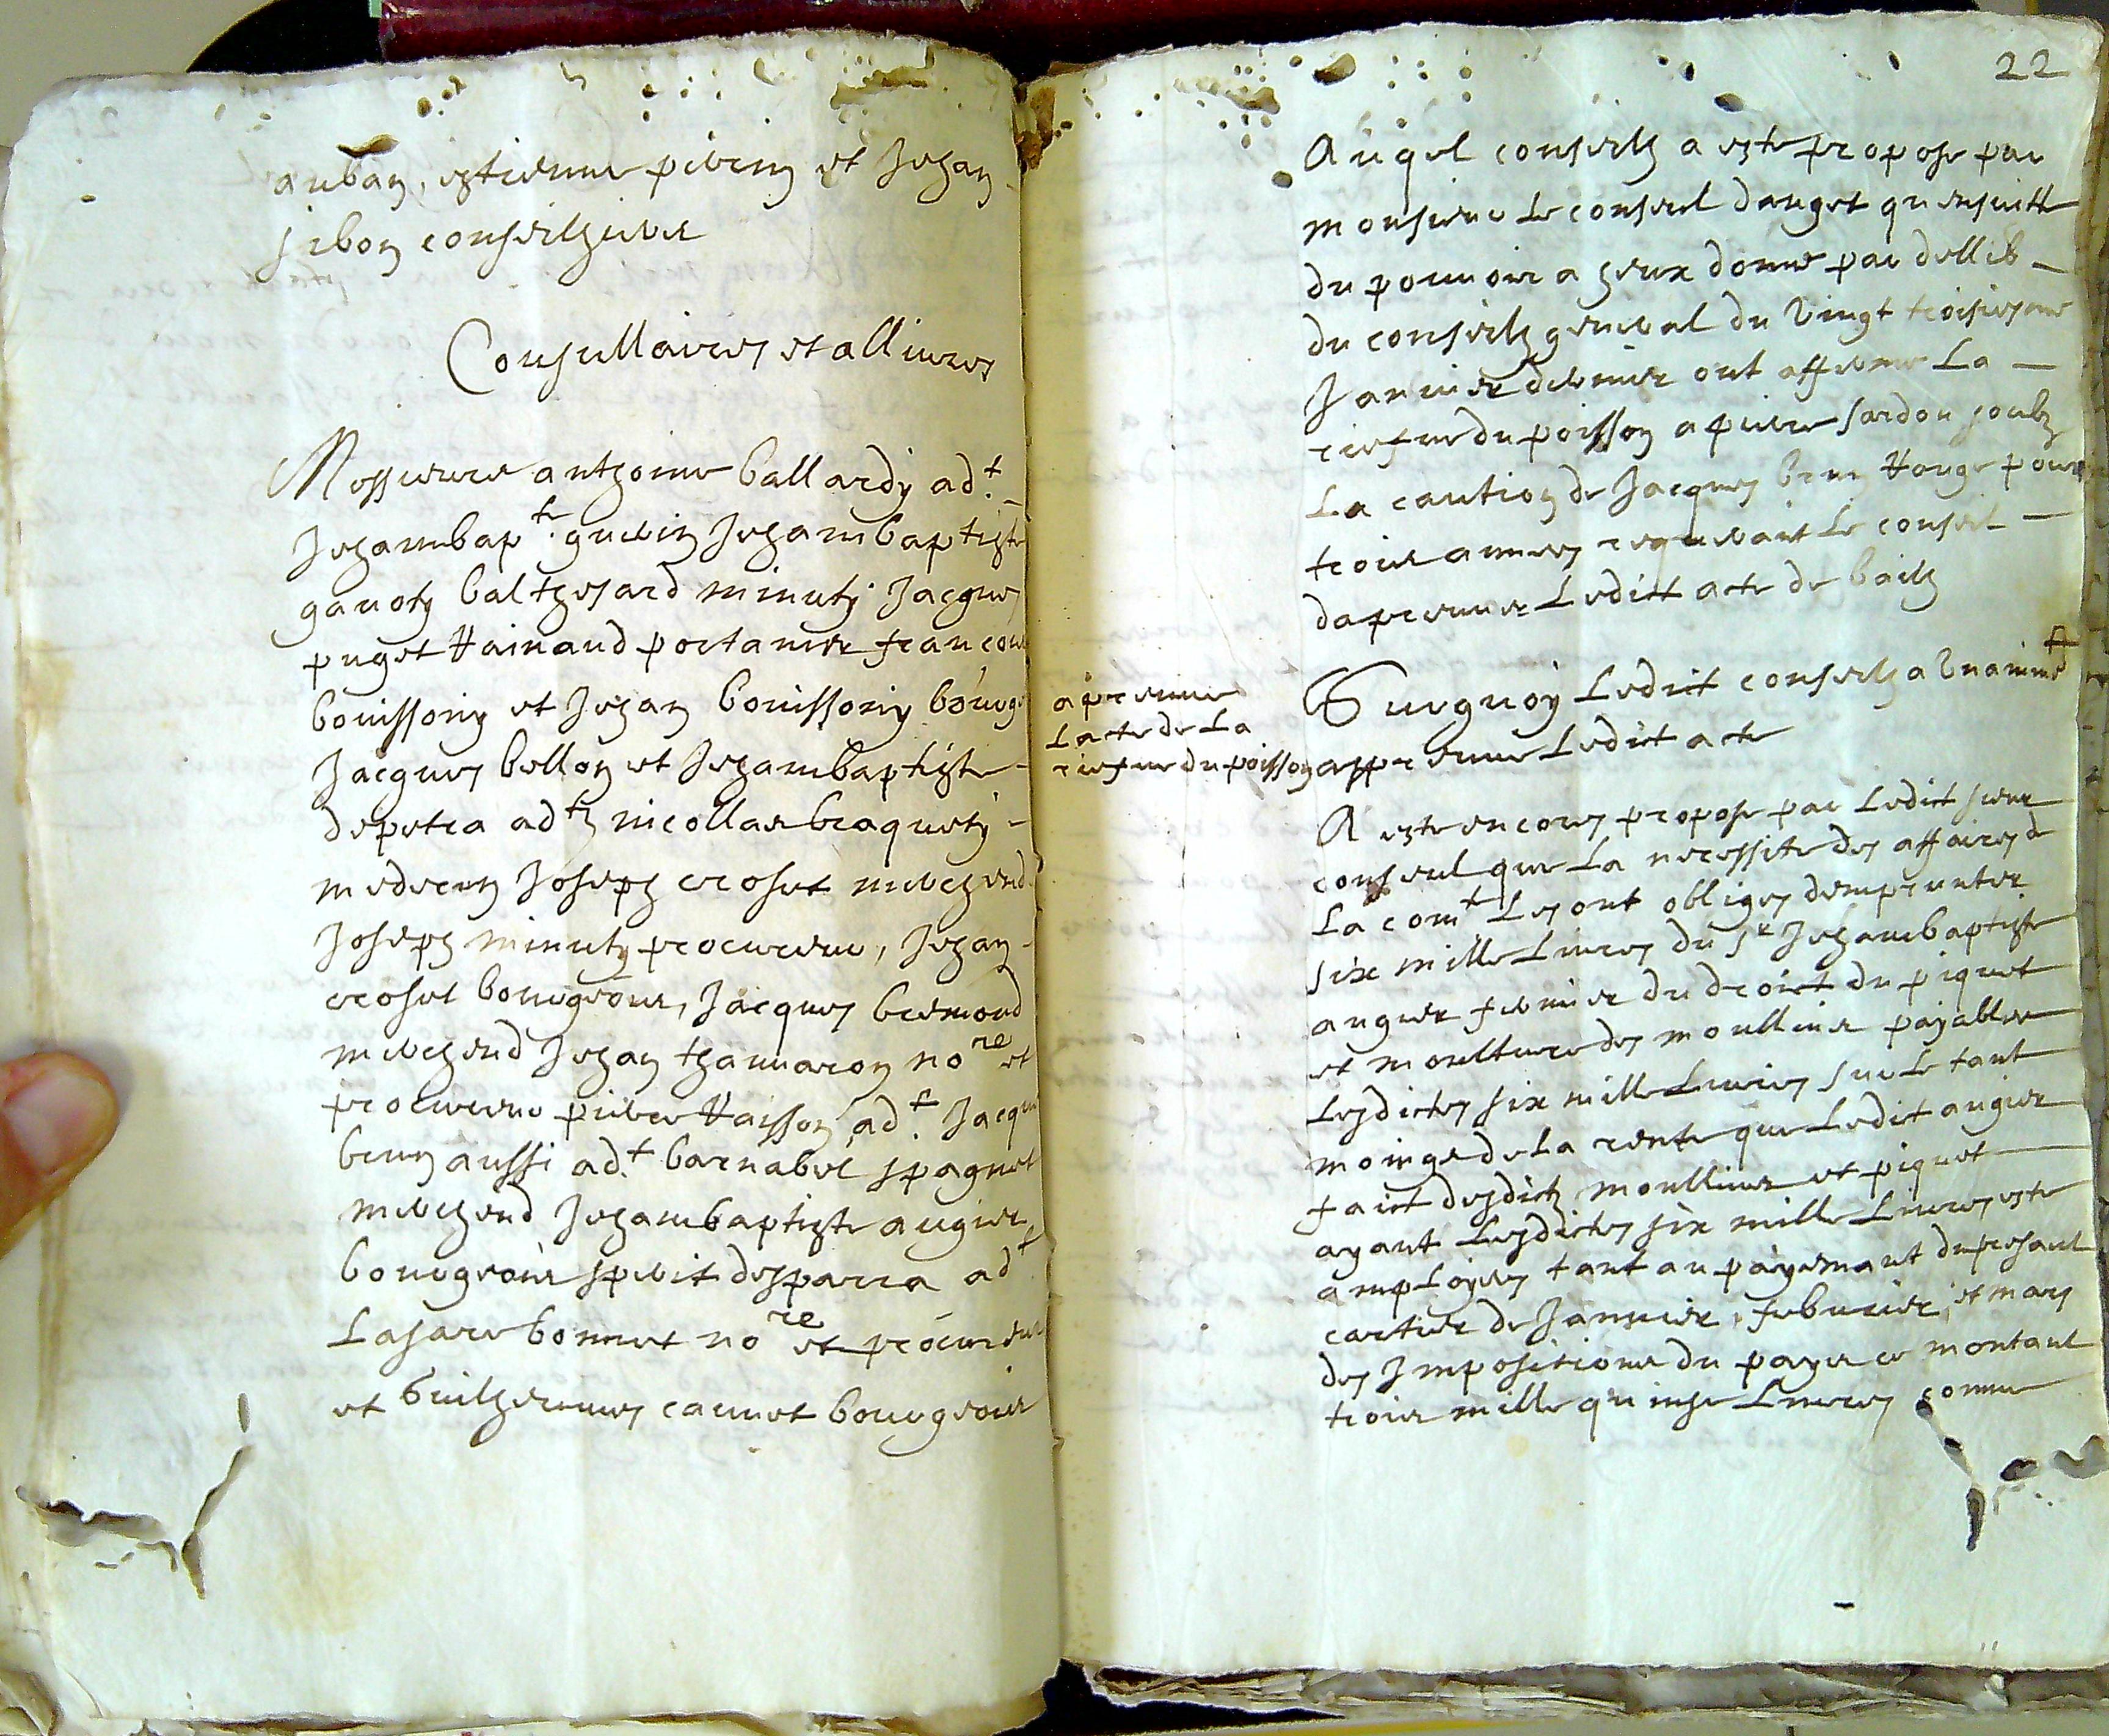 auban, estienne pierin et Jehan
sibon conseilhiers
Consullaires et allivres
Messieurs anthoine ballardy ad.t
Jehambap.te guerin Jehambaptiste
gavoty balthesard minuty Jacques
puget Rainaud portanier francois
bouissony et Jehan bouissony bourg
Jacques bellon et Jehambaptiste
depetra ad.tz nicollas braquety
medecin Joseph croset merchend
Joseph minuty procureur, Jehan
croset bourgeois, Jacques bremond
merchend Jehan thamaron no.re et
procureur pierre Raisson ad.t Jacques
brun aussi ad.t barnabel spagnet
merchend Jehambaptiste augier
bourgeois sperit desparra ad.t
Lasare bonnet no.re et procureur
et builhermes caunet bourgeois
22
Auqel conseilh a este propose par
monsieur le conseul dauget qu ensuitte
du pouvoir a heux donné par dellib
du conseilh general du vingt troisiesme
Janvier dernier ont affermé La
riefve du poisson a pierre sardou soubz
La caution de Jacques brun Rouge pour
trois annees requerant le conseil
daprouver Ledict acte de bailh
Surquoy Ledict conseilh a unanimt
approuve Ledict acte
aprouve
Lacte de La
riefve du poisson
A este encores propose par Ledict sieur
conseul que La necessite des affaires de
La comt Les ont obliges demprunter
six mille Livres du sr Jehambaptiste
augier fermier du droict du piquet
et moulture des moullins payables
Lesdictes six mille Livres sur le tant
moings de La rente que Ledit augier
faict desdictz moullins et piquet
ayant Lesdictes six mille Livres este
amployes tant au payemant du presant
cartier de Janvier, febvrier, et mars
des Impositions du pays ce montant
trois mille quinse Livres comme